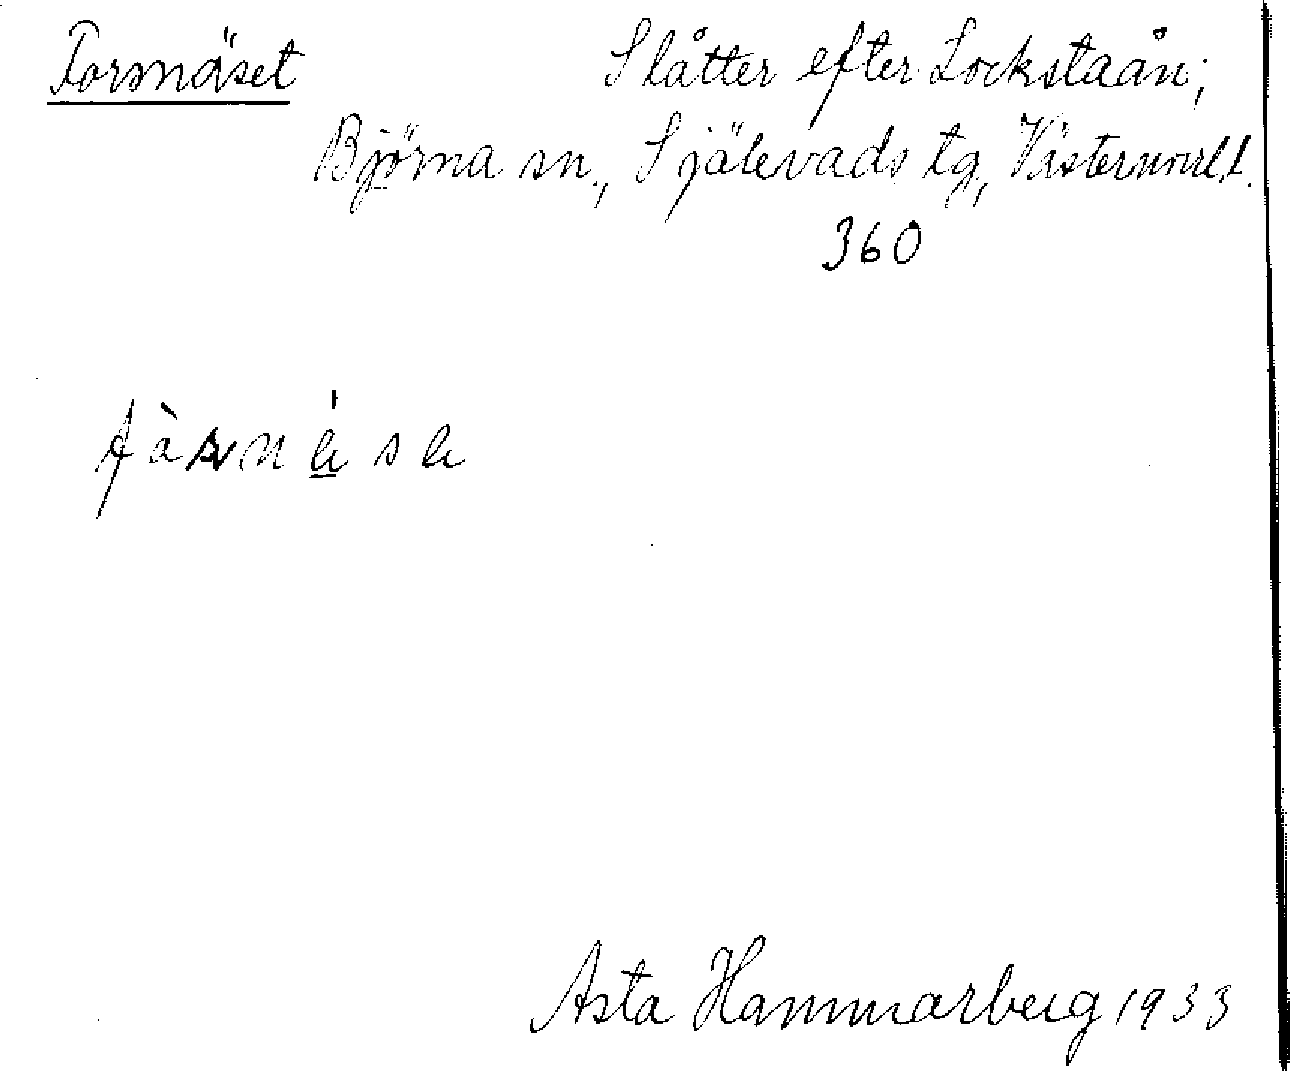 Torsnäset Slåtter efter Lockstaån;
Björna sn., Själevads tg, Västernorrl. l.
360
Asta Hammarberg 1933